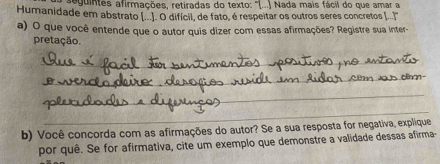 seguintes afirmações, retiradas do texto: "[...] Nada mais fácil do que amar a
Humanidade em abstrato [...]. O difícil, de fato, é respeitar os outros seres concretos [...]"
a) O que você entende que o autor quis dizer com essas afirmações? Registre sua inter-
pretação.
Que é fácil ter sentimentos positivos, no entanto
o verdadeiro desafios reside em lidar com as com-
plexidades e diferenças
b) Você concorda com as afirmações do autor? Se a sua resposta for negativa, explique
por quê. Se for afirmativa, cite um exemplo que demonstre a validade dessas afirma-